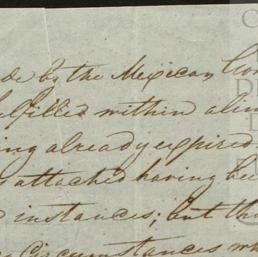 de by the Mexican Con
ulfilled within a lim
ing already expired
s attached having be
instances; but th
Circumstances wh